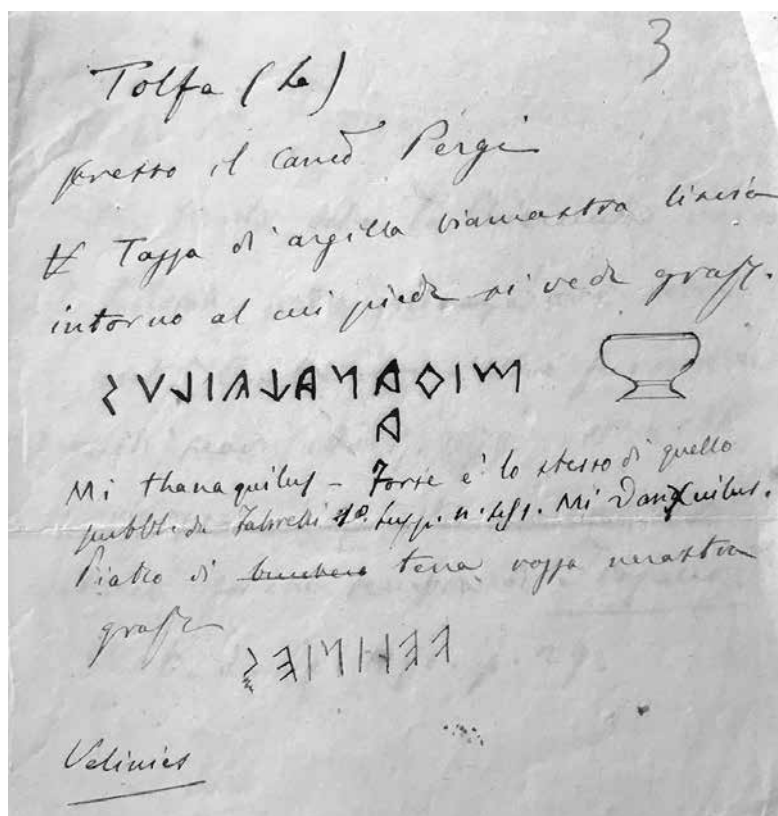 3
Tolfa (La)
presso il Canco Pergi
Tazza di argilla biancastra liscia
intorno al cui piede si vede graff.
Mi thanaquilus – Forse è lo stesso di quello
pubbl. da Fabretti 1º. supp. n. Mi
Piatto di bucchero terra rozza nerastra
graff
Velinies